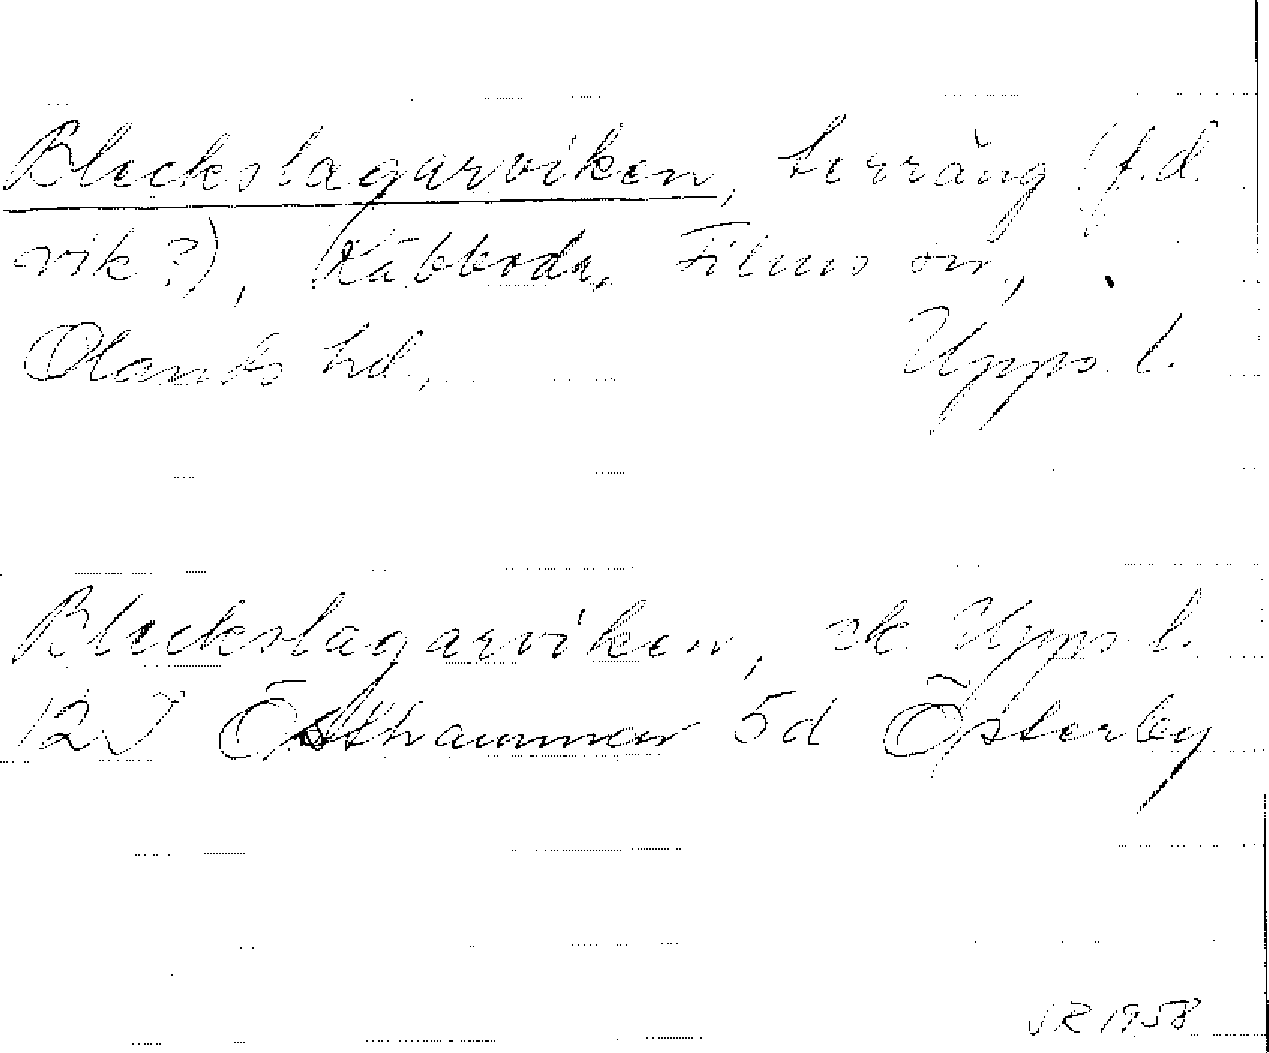 Bleckslagarviken, terräng (f.d.
vik?), Kåbboda, Films sn,
Olands hd, Upps. l.
Bleckslagarviken, ek. Upps l.
12J Östhammar 5d Österby
VR 1958